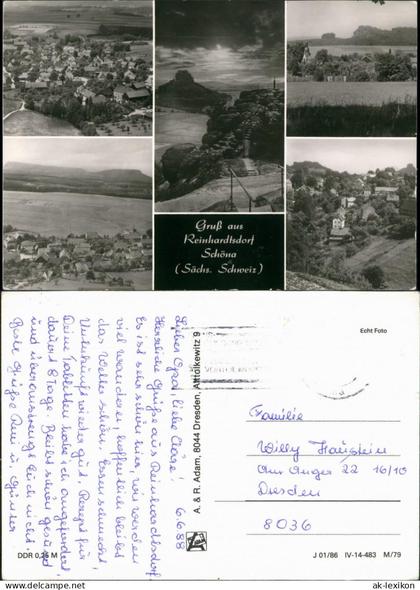 Gruß aus
Reinhardtsdorf
Schöna
(Sächs. Schweiz)
6.6.88
Lieber Opa, liebe Cläre!
Herzliche Grüße aus Reinhardtsdorf
Es ist sehr schön hier, wir werden
viel wandern, hoffentlich bleibt
das Wetter schön. Essen schmeckt,
Unterkunft wieder gut. Rezept für
Deine Tabletten habe ich angefordert,
dauert 8 Tage. Bleibt schön gesund
und überanstrengt Euch nicht.
Bis Grüße u. Günter
A. & R. Adam, 8044 Dresden, Altfolkewitz 9
Echt Foto
Familie
Willy Haustein
Am Anger 22 16/10
Dresden
8036
DDR 0,25 M
J 01/86 IV-14-483 M/79